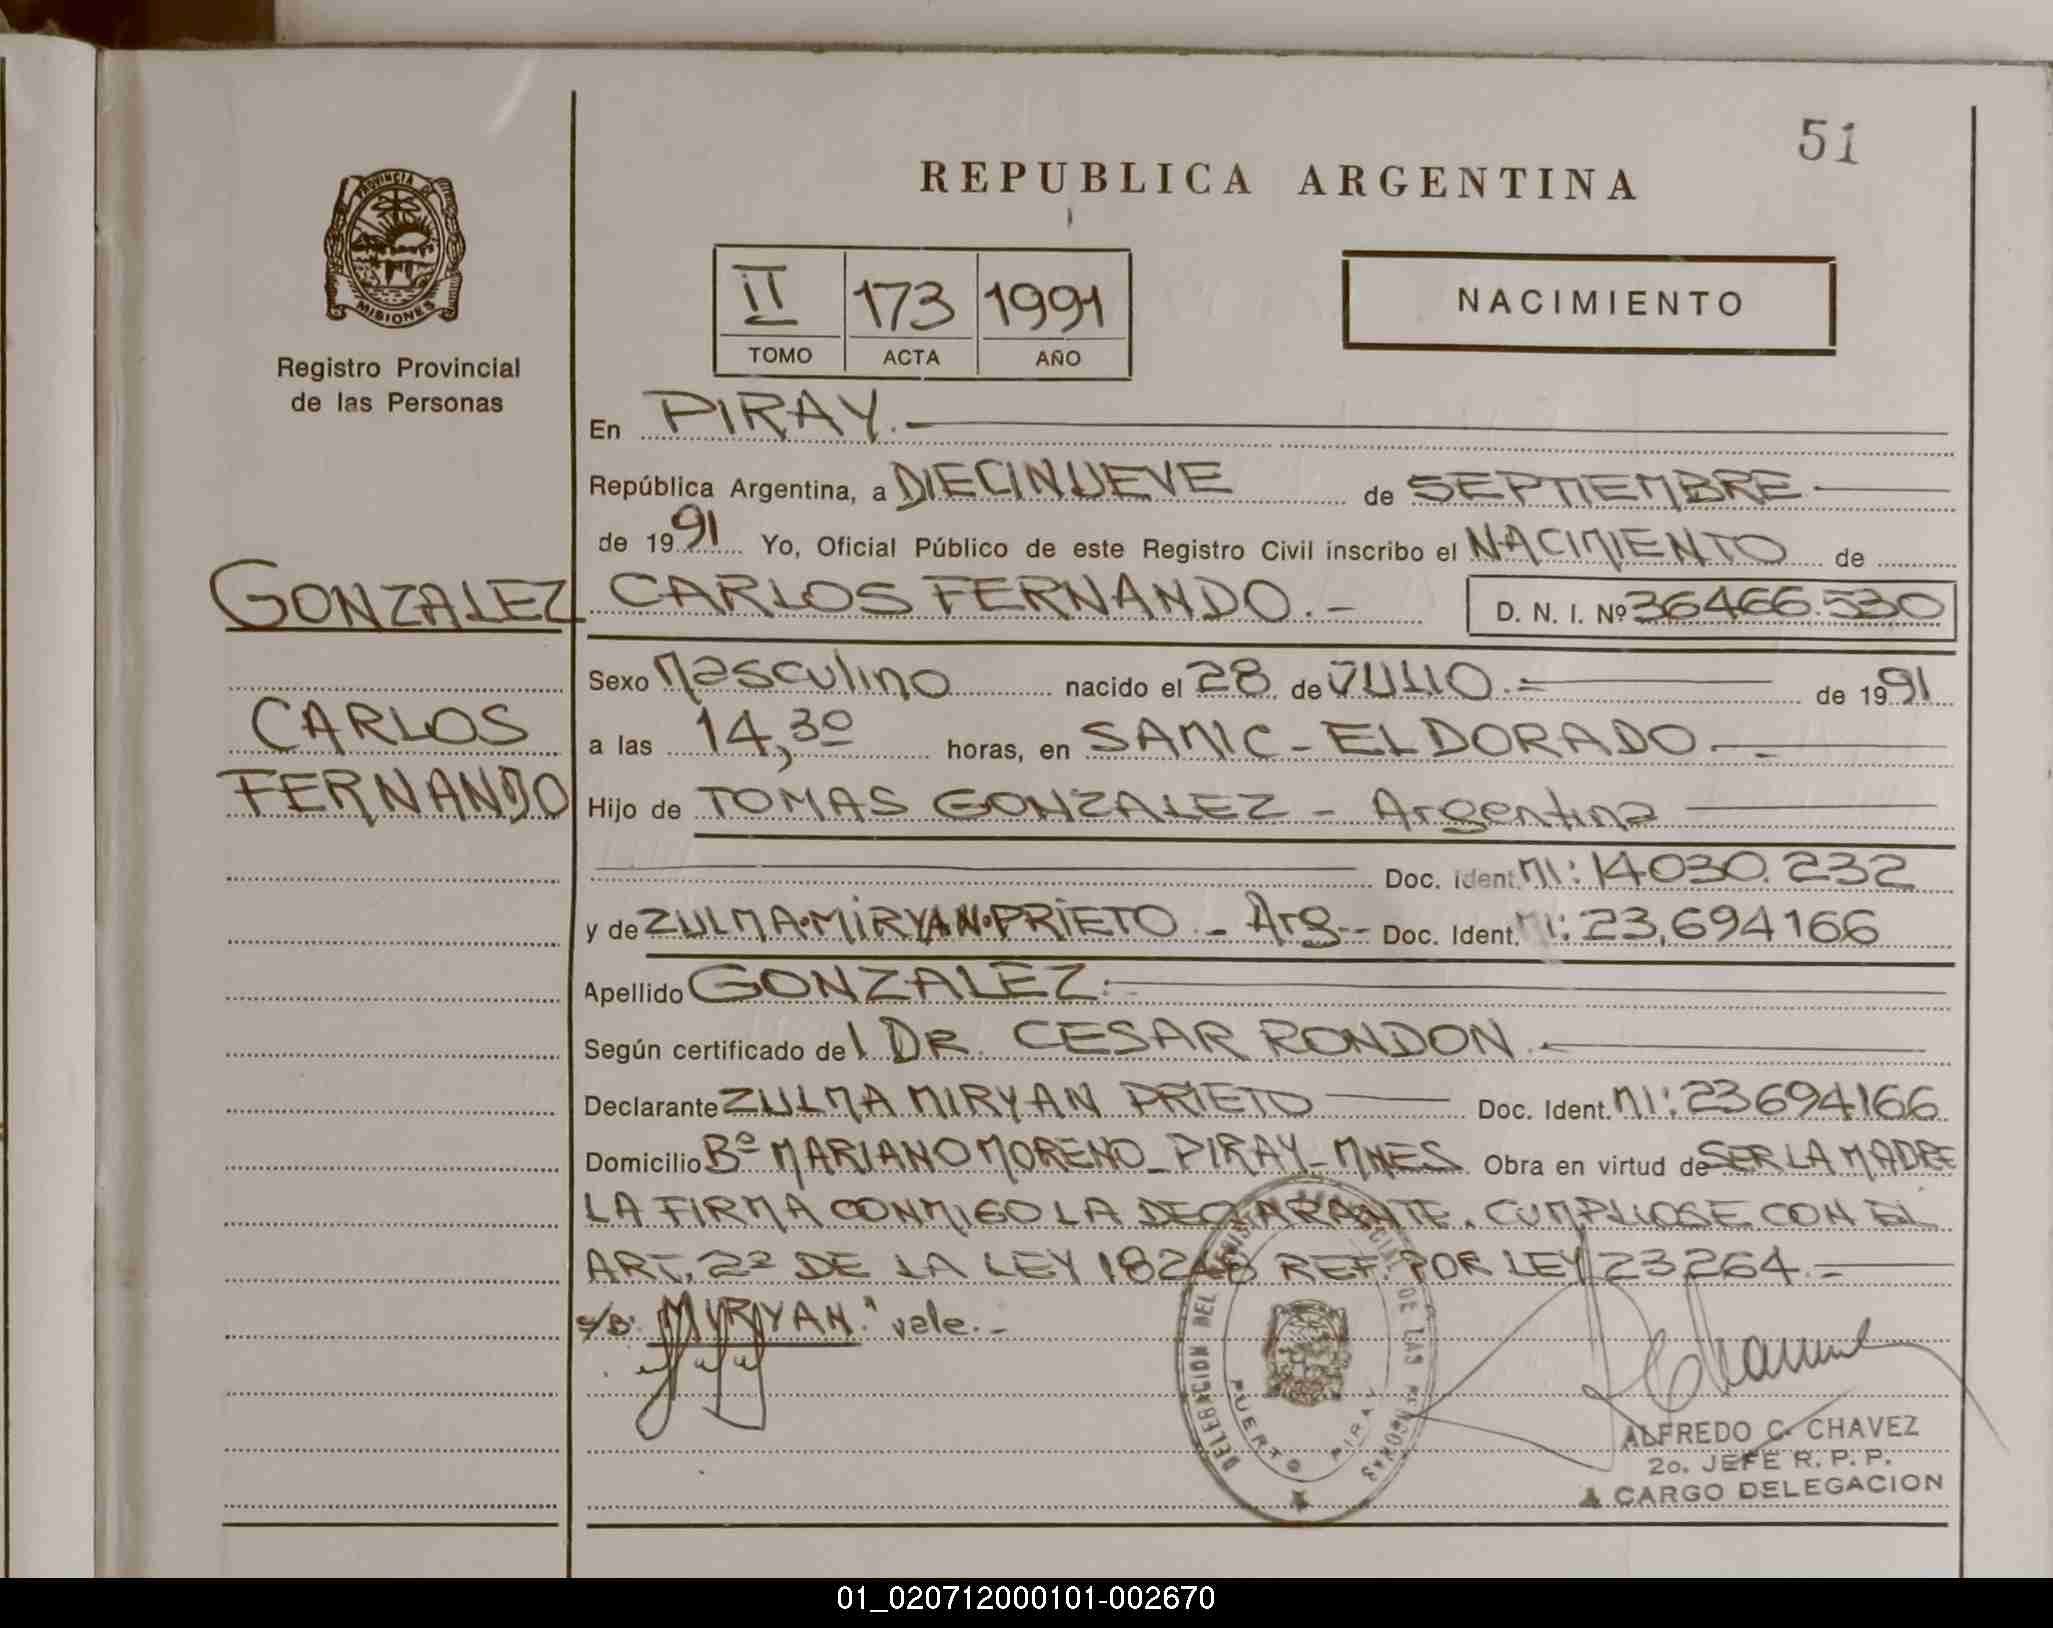 51
REPUBLICA ARGENTINA
PROVINCIA DE
MISIONES
Registro Provincial
de las Personas
II 173 1991
TOMO ACTA AÑO
NACIMIENTO
En PIRAY.-
República Argentina, a DIECINUEVE de SEPTIEMBRE
de 1991 Yo, Oficial Público de este Registro Civil inscribo el NACIMIENTO de
GONZALEZ CARLOS FERNANDO.- D. N. I. Nº 36466.530
Sexo Masculino nacido el 28 de JULIO.= de 1991
CARLOS
a las 14,30 horas, en SAMIC - ELDORADO
FERNANDO
Hijo de TOMAS GONZALEZ - Argentina
Doc. Ident. MI: 14030.232
y de ZULMA·MIRYAN·PRIETO - Arg-- Doc. Ident. MI: 23,694166
Apellido GONZALEZ.-
Según certificado del DR. CESAR RONDON.
Declarante ZULMA MIRYAN PRIETO Doc. Ident. MI: 23694166
Domicilio Bº MARIANO MORENO - PIRAY - MNES Obra en virtud de SER LA MADRE
LA FIRMA CONMIGO LA DECLARANTE. CUMPLIOSE CON EL
ART. 2º DE LA LEY 18248 REF. POR LEY 23264.-
s/b: "MIRYAN." vale.-
DELEGACION DEL REGISTRO PROVINCIAL DE LAS PERSONAS
PUERTO PIRAY
ALFREDO C. CHAVEZ
2o. JEFE R. P. P.
A CARGO DELEGACION
01_020712000101-002670